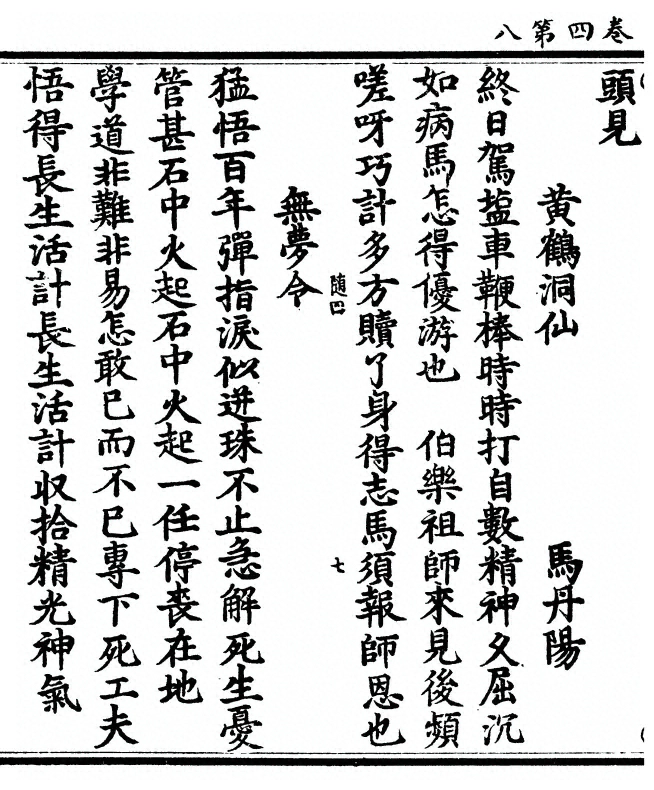 卷四第八
頭見
黃鶴洞仙 馬丹陽
終日駕塩車鞭棒時時打自數精神久屈沉
如病馬怎得優游也 伯樂祖師來見後頻
嗟呀巧計多方贖了身得志馬須報師恩也
隨四 七
無夢令
猛悟百年彈指淚似迸珠不止急解死生憂
管甚石中火起石中火起一任停喪在地
學道非難非易怎敢巳而不巳專下死工夫
悟得長生活計長生活計収拾精光神氣